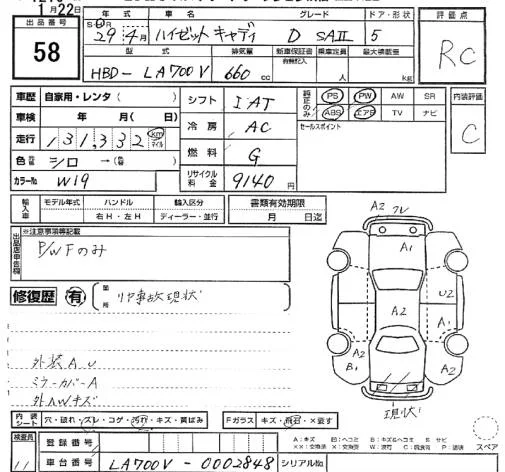 1月22日
出品番号
58
年式 車名 グレード ドア・形状
29年4月 ハイゼットキャディ D SAⅡ 5
型式 排気量 新車保証書 乗車定員 最大積載量
有無記入
HBD-LA700V 660 cc 人 kg
評価点
RC
車歴 自家用・レンタ( )
車検 年 月( 日)
走行 131,332 km マイル
色 シロ → ( 系)
カラーNo W19
シフト IAT
冷房 AC
燃料 G
リサイクル料金 9140 円
純正のみ
PS PW AW SR
ABS エアB TV ナビ
セールスポイント
内装評価
C
輸入車 モデル年式 ハンドル 輸入区分
右H・左H ディーラー・並行
書類有効期限
月 日迄
出品店申告欄
※注意事項等記載
P/WFのみ
修復歴 有 箇所 リア事故現状
外装AU
ミラーカバーA
A2 フレ
A1
A2
U2
A1
A2
B1
A2
現状
内装シート 穴・破れ・スレ・コゲ・汚れ・キズ・黄ばみ
Fガラス キズ・飛石・×要す
検査員
11
登録番号
車台番号 LA700V-0002848 シリアルNo.
A:キズ
スペア